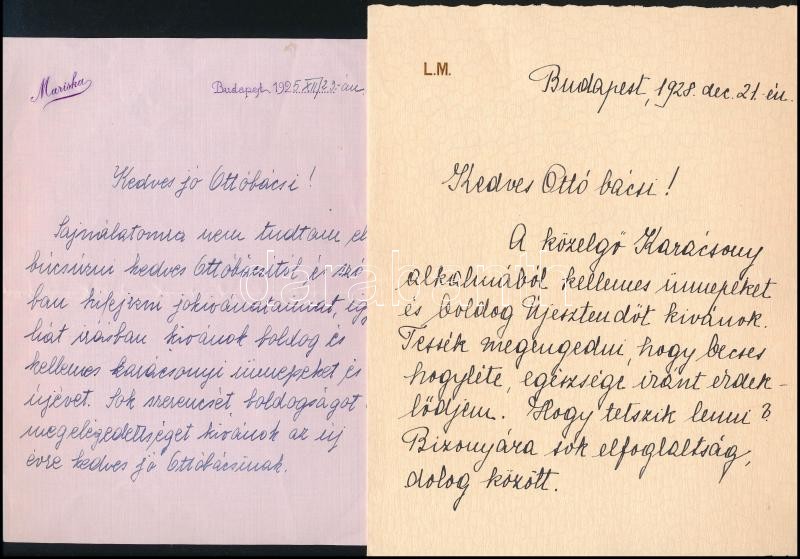 Mariska
Budapest, 1925 XII/23-án
Kedves jó Ottóbácsi!
Sajnálatomra nem tudtam el
búcsúzni kedves Ottóbácsitól és szó
ban kifejezni jókivánataimat, így
hát irásban kivánok boldog és
kellemes karácsonyi ünnepeket és
újévet. Sok szerencsét, boldogságot
megelégedettséget kivánok az új
évre kedves jó Ottóbácsinak.
L.M.
Budapest, 1928. dec. 21.-én.
Kedves Ottó bácsi!
A közelgő Karácsony
alkalmából kellemes ünnepeket
és boldog Újesztendőt kivánok.
Tessék megengedni, hogy becses
hogyléte, egészsége iránt érdek-
lődjem. Hogy tetszik lenni?
Bizonyára sok elfoglaltság,
dolog között.
darabanth